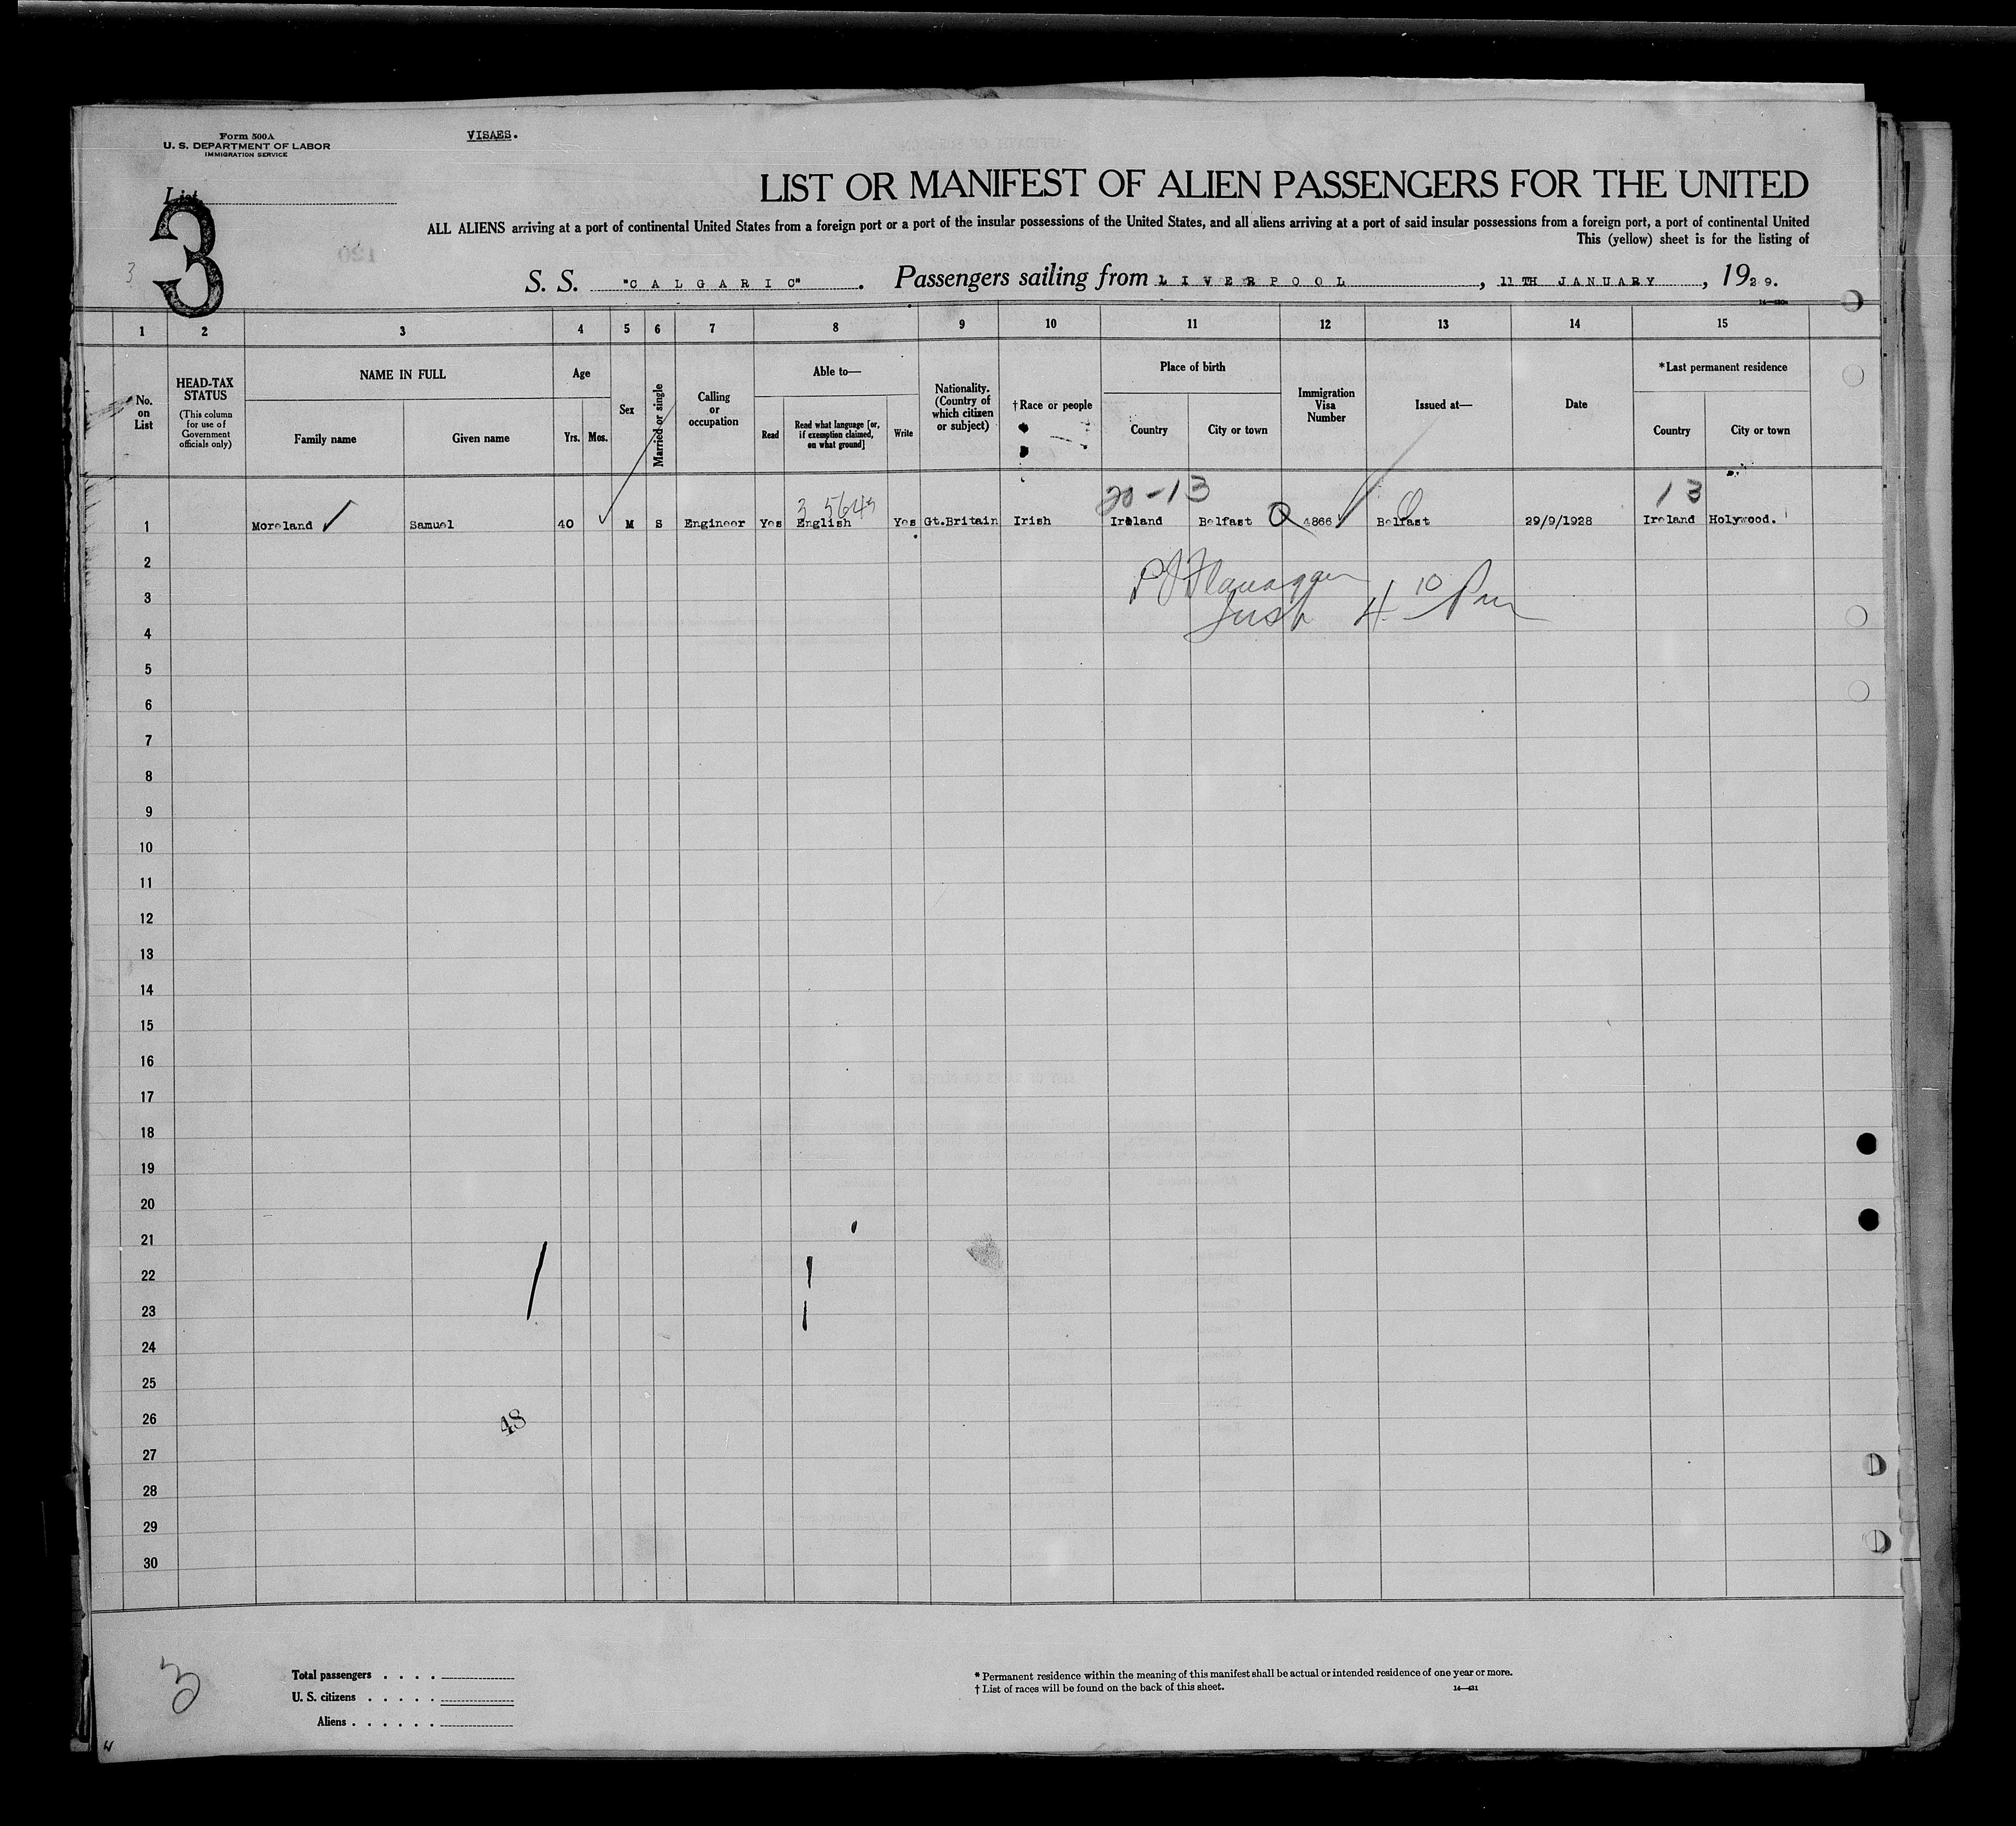 Form 500A
U. S. DEPARTMENT OF LABOR
IMMIGRATION SERVICE
VISAES.
List
3
3
LIST OR MANIFEST OF ALIEN PASSENGERS FOR THE UNITED
ALL ALIENS arriving at a port of continental United States from a foreign port or a port of the insular possessions of the United States, and all aliens arriving at a port of said insular possessions from a foreign port, a port of continental United
This (yellow) sheet is for the listing of
120
S. S. "CALGARIC". Passengers sailing from LIVERPOOL, 11TH JANUARY, 1929.
1 2 3 4 5 6 7 8 9 10 11 12 13 14 15
No. on List
HEAD-TAX STATUS
(This column for use of Government officials only)
NAME IN FULL
Family name
Given name
Age
Yrs. Mos.
Sex
Married or single
Calling or occupation
Able to—
Read
Read what language [or, if exemption claimed, on what ground]
Write
Nationality. (Country of which citizen or subject)
†Race or people
Place of birth
Country
City or town
Immigration Visa Number
Issued at—
Date
*Last permanent residence
Country
City or town
20-13
13
1 Moreland Samuel 40 M S Engineer Yes English Yes Gt.Britain Irish Ireland Belfast 4866 Belfast 29/9/1928 Ireland Holywood.
2
P J Flanaggan
3
Insp 4 10 Pm
4
5
6
7
8
9
10
11
12
13
14
15
16
17
18
19
20
21
22
23
24
25
26
48
27
28
29
30
3
Total passengers . . . .
U. S. citizens . . . . .
Aliens . . . . . .
* Permanent residence within the meaning of this manifest shall be actual or intended residence of one year or more.
† List of races will be found on the back of this sheet.